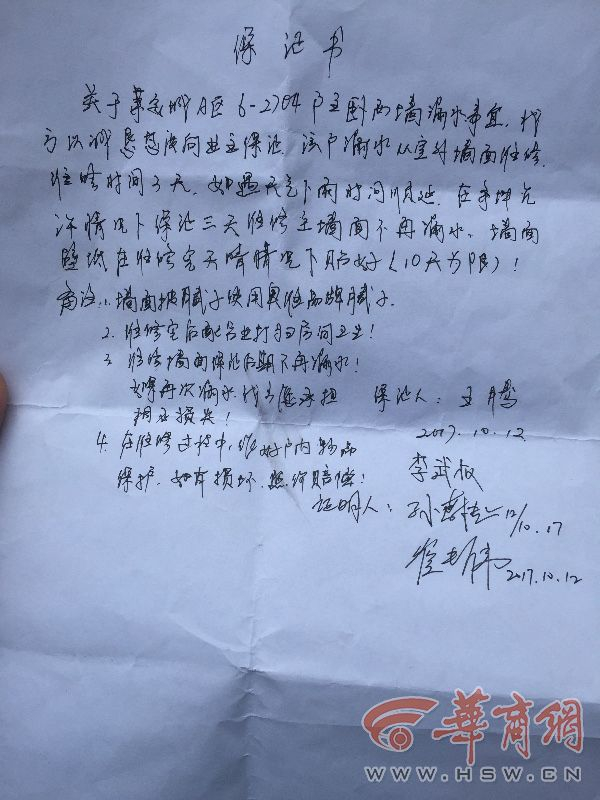 保证书
关于莱安城A区6-2704户主卧西墙漏水事宜,我
方以诚恳态度向业主保证,该户漏水从室外墙面维修,
维修时间3天,如遇天气下雨时间顺延,在条件允
许情况下保证三天维修至墙面不再漏水,墙面
壁纸在维修完天晴情况下贴好(10天为限)!
备注:1.墙面批腻子使用美巢品牌腻子.
2.维修完后配合业主打扫房间卫生!
3.维修墙面保证后期不再漏水!
如果再次漏水,我方愿承担
损失!
保证人:王鹏
2017.10.12
4.在维修过程中,做好户内物品
保护,如有损坏,照价赔偿!
李武权
证明人:孙 12/10.17
崔 伟 2017.10.12
華商網
WWW.HSW.CN